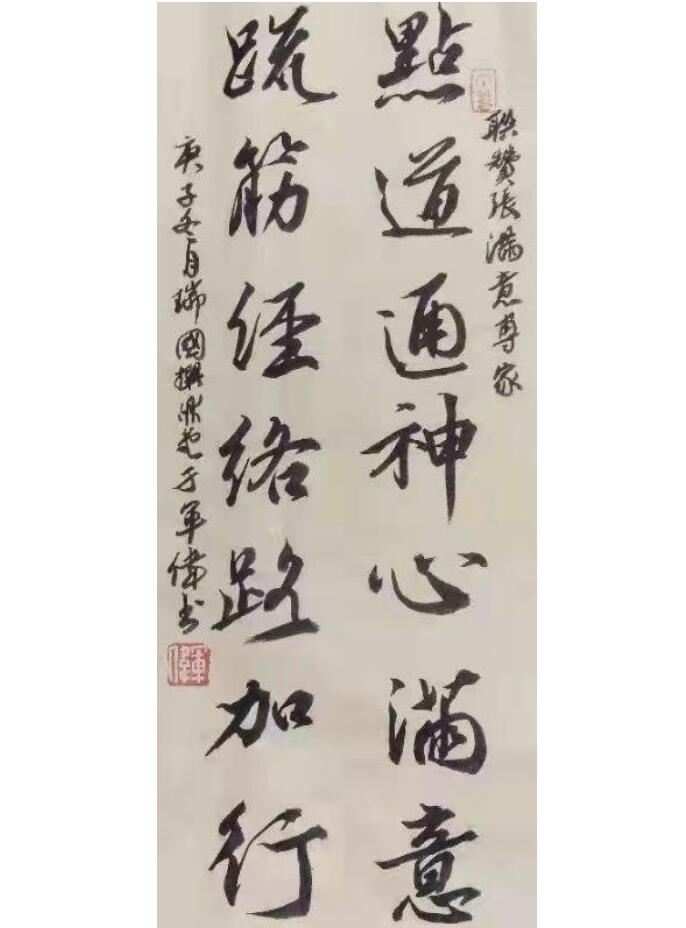 聯贊張滿意專家
點道通神心滿意
疏筋經絡路加行
庚子冬月瑞國撰于軍偉书
軍偉